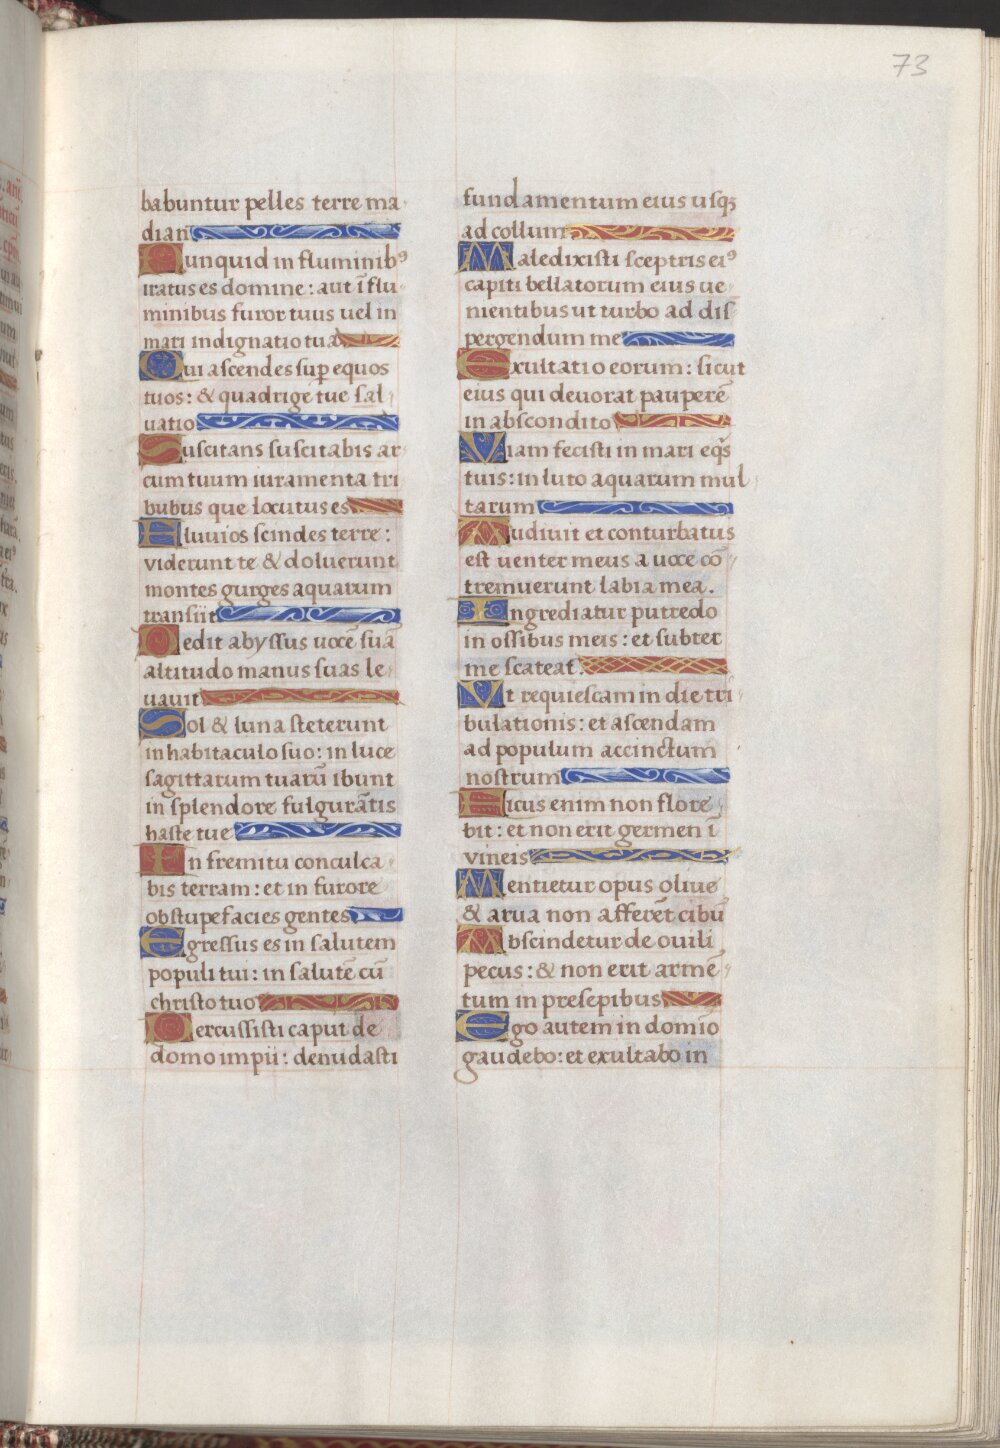 73
babuntur pelles terre ma
dian
Nunquid in fluminibꝰ
iratus es domine: aut ī flu
minibus furor tuus uel in
mari indignatio tua
Qui ascendes suꝑ equos
tuos: & quadrige tue sal
uatio
Suscitans suscitabis ar
cum tuum iuramenta tri
bubus que locutus es
Fluuios scindes terre:
viderunt te & doluerunt
montes gurges aquarum
transiit
Dedit abyssus uocē suā
altitudo manus suas le
uauit
Sol & luna steterunt
in habitaculo suo: in luce
sagittarum tuarū ibunt
in splendore fulgurātis
haste tue
In fremitu conculca
bis terram: et in furore
obstupefacies gentes
Egressus es in salutem
populi tui: in salutē cū
christo tuo
Percussisti caput de
domo impii: denudasti
fundamentum eius usqꝫ
ad collum
Maledixisti sceptris eiꝰ
capiti bellatorum eius ue
nientibus ut turbo ad dis
pergendum me
Exultatio eorum: sicut
eius qui deuorat pauperē
in abscondito
Viam fecisti in mari eq̄s
tuis: in luto aquarum mul
tarum
Audiuit et conturbatus
est uenter meus a uoce cō
tremuerunt labia mea.
Ingrediatur putredo
in ossibus meis: et subter
me scateat.
Vt requiescam in die tri
bulationis: et ascendam
ad populum accinctum
nostrum
Ficus enim non flore
bit: et non erit germen ī
vineis
Mentietur opus oliue
& arua non afferēt cibū
Abscindetur de ouili
pecus: & non erit armē
tum in presepibus
Ego autem in domīo
gaudebo: et exultabo in